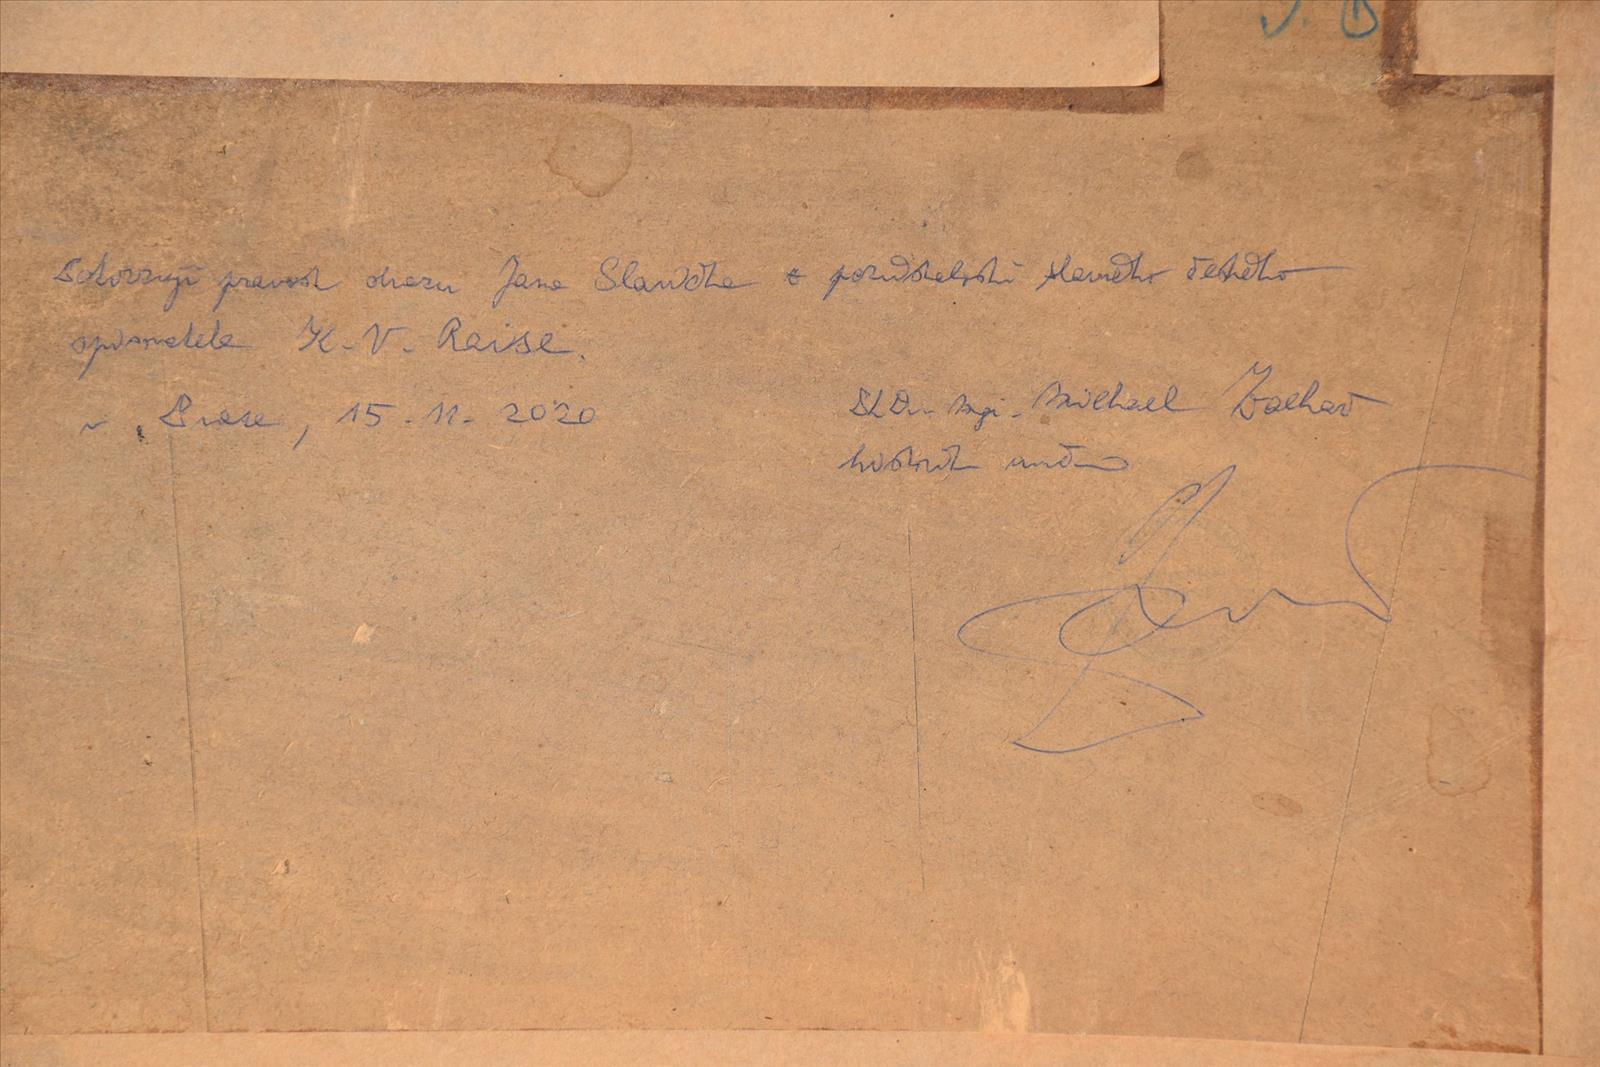 J. B
Potvrzuji pravost obrazu Jana Slavíčka z pozůstalosti slavného českého
spisovatele K. V. Raise.
V Praze, 15. 11. 2020
PhDr. Mgr. Michael Zachař
historik umění